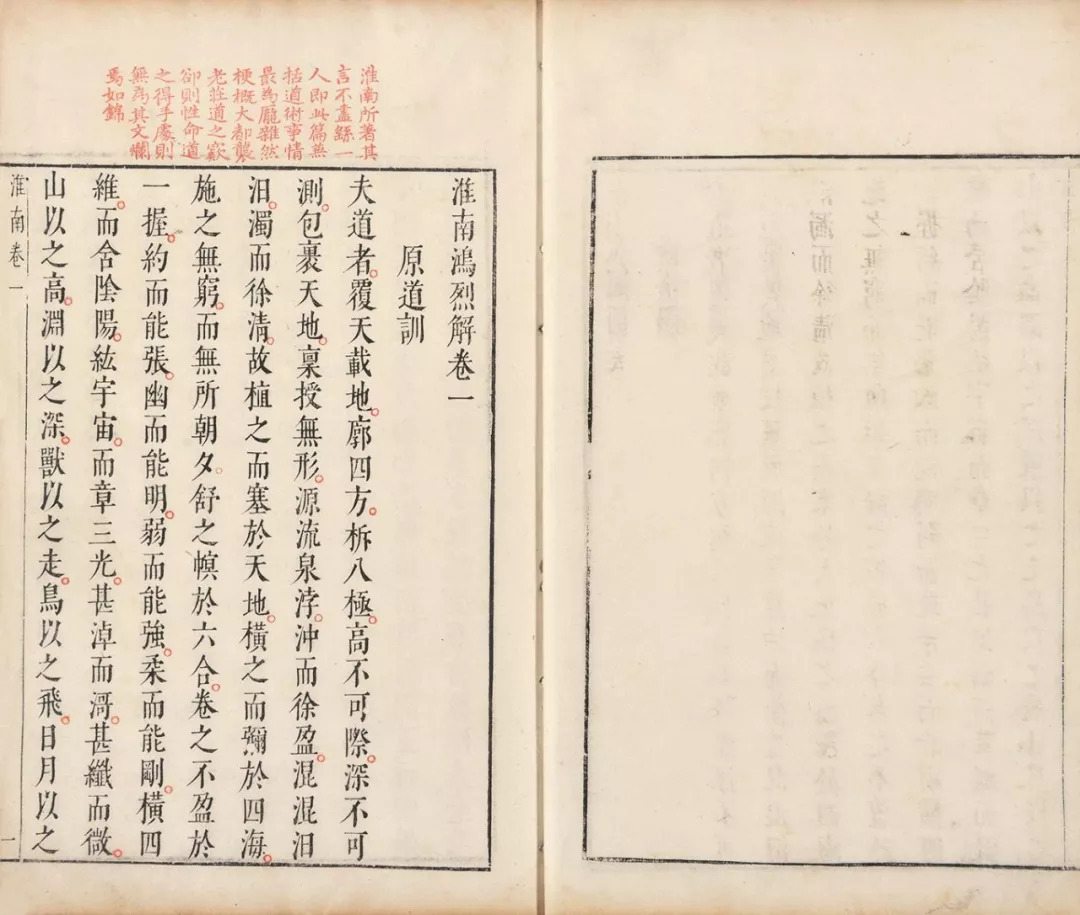 淮南所著其
言不盡繇一
人即此篇無
括道術事情
最為龐雜然
梗概大都襲
老莊道之窾
卻則性命道
之得手處則
無為其文爛
焉如錦
淮南鴻烈解卷一
原道訓
夫道者。覆天載地。廓四方。柝八極。高不可際。深不可
測。包裹天地。稟授無形。源流泉浡。沖而徐盈。混混汩
汩。濁而徐清。故植之而塞於天地。橫之而彌於四海。
施之無窮。而無所朝夕。舒之幎於六合。卷之不盈於
一握。約而能張。幽而能明。弱而能強。柔而能剛。橫四
維。而含陰陽。紘宇宙。而章三光。甚淖而滒。甚纖而微。
山以之高。淵以之深。獸以之走。鳥以之飛。日月以之
淮南卷一
一